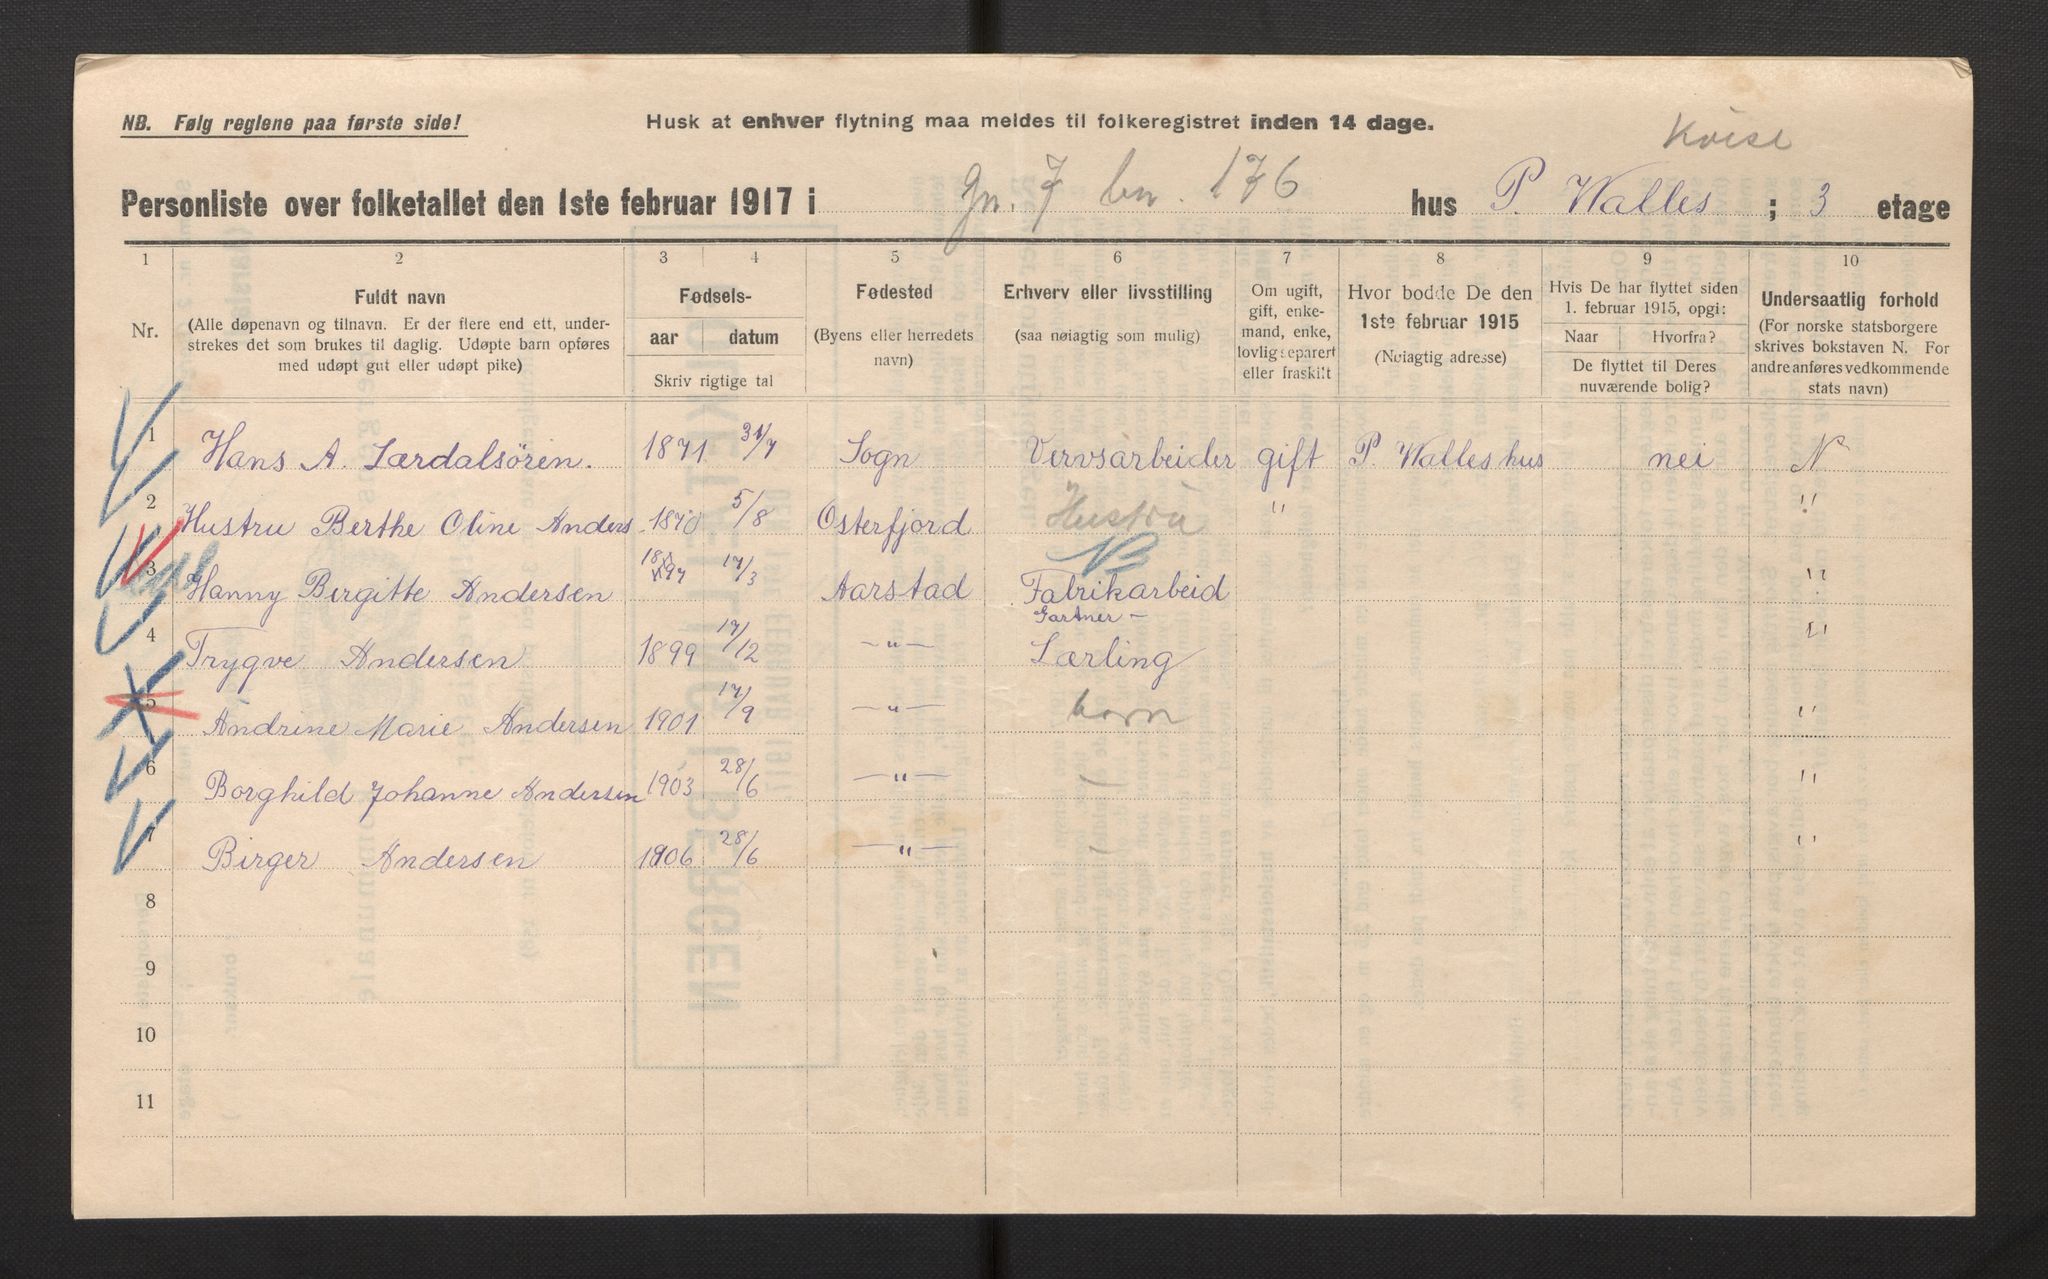 NB. Følg reglene paa første side! Husk at enhver flytning maa meldes til folkeregistret inden 14 dage.
Kvist
Personliste over folketallet den 1ste februar 1917 i Gn. 7 bn. 176 hus P. Walles ; 3 etage
1 2 3 4 5 6 7 8 9 10
Nr.
Fuldt navn
(Alle døpenavn og tilnavn. Er der flere end ett, under-
strekes det som brukes til daglig. Udøpte barn opføres
med udøpt gut eller udøpt pike)
Fødsels-
aar datum
Skriv rigtige tal
Fødested
(Byens eller herredets
navn)
Erhverv eller livsstilling
(saa nøiagtig som mulig)
Om ugift,
gift, enke-
mand, enke,
lovlig separert
eller fraskilt
Hvor bodde De den
1ste februar 1915
(Nøiagtig adresse)
Hvis De har flyttet siden
1. februar 1915, opgi:
Naar Hvorfra?
De flyttet til Deres
nuværende bolig?
Undersaatlig forhold
(For norske statsborgere
skrives bokstaven N. For
andre anføres vedkommende
stats navn)
1 Hans A. Lærdalsören. 1871 31/7 Sogn Vervsarbeider gift P. Walles hus nei N
2 Hustru Berthe Oline Anders 1870 5/8 Osterfjord Hustru " "
3 Hanny Birgitte Andersen 1897 17/3 Aarstad Fabrikarbeid "
4 Trygve Andersen 1899 17/12 —"— Gartner-
Lærling "
5 Andrine Marie Andersen 1901 17/9 —"— barn "
6 Borghild Johanne Andersen 1903 28/6 —"— / "
7 Birger Andersen 1906 28/6 —"— / "
8
9
10
11